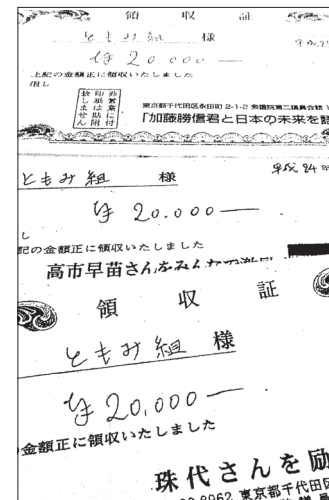 領 収 証
ともみ組 様
¥20000-
上記の金額正に領収いたしました
但し
非営業に付
印紙は貼附
致しません
東京都千代田区永田町2-1-2 衆議院第二議員会館
「加藤勝信君と日本の未来を語
ともみ組 様
平成24年
¥20.000-
し
記の金額正に領収いたしました
高市早苗さんをみんなで激励
領 収 証
ともみ組 様
¥20,000-
金額正に領収いたしました
珠代さんを励
8962 東京都千代田区